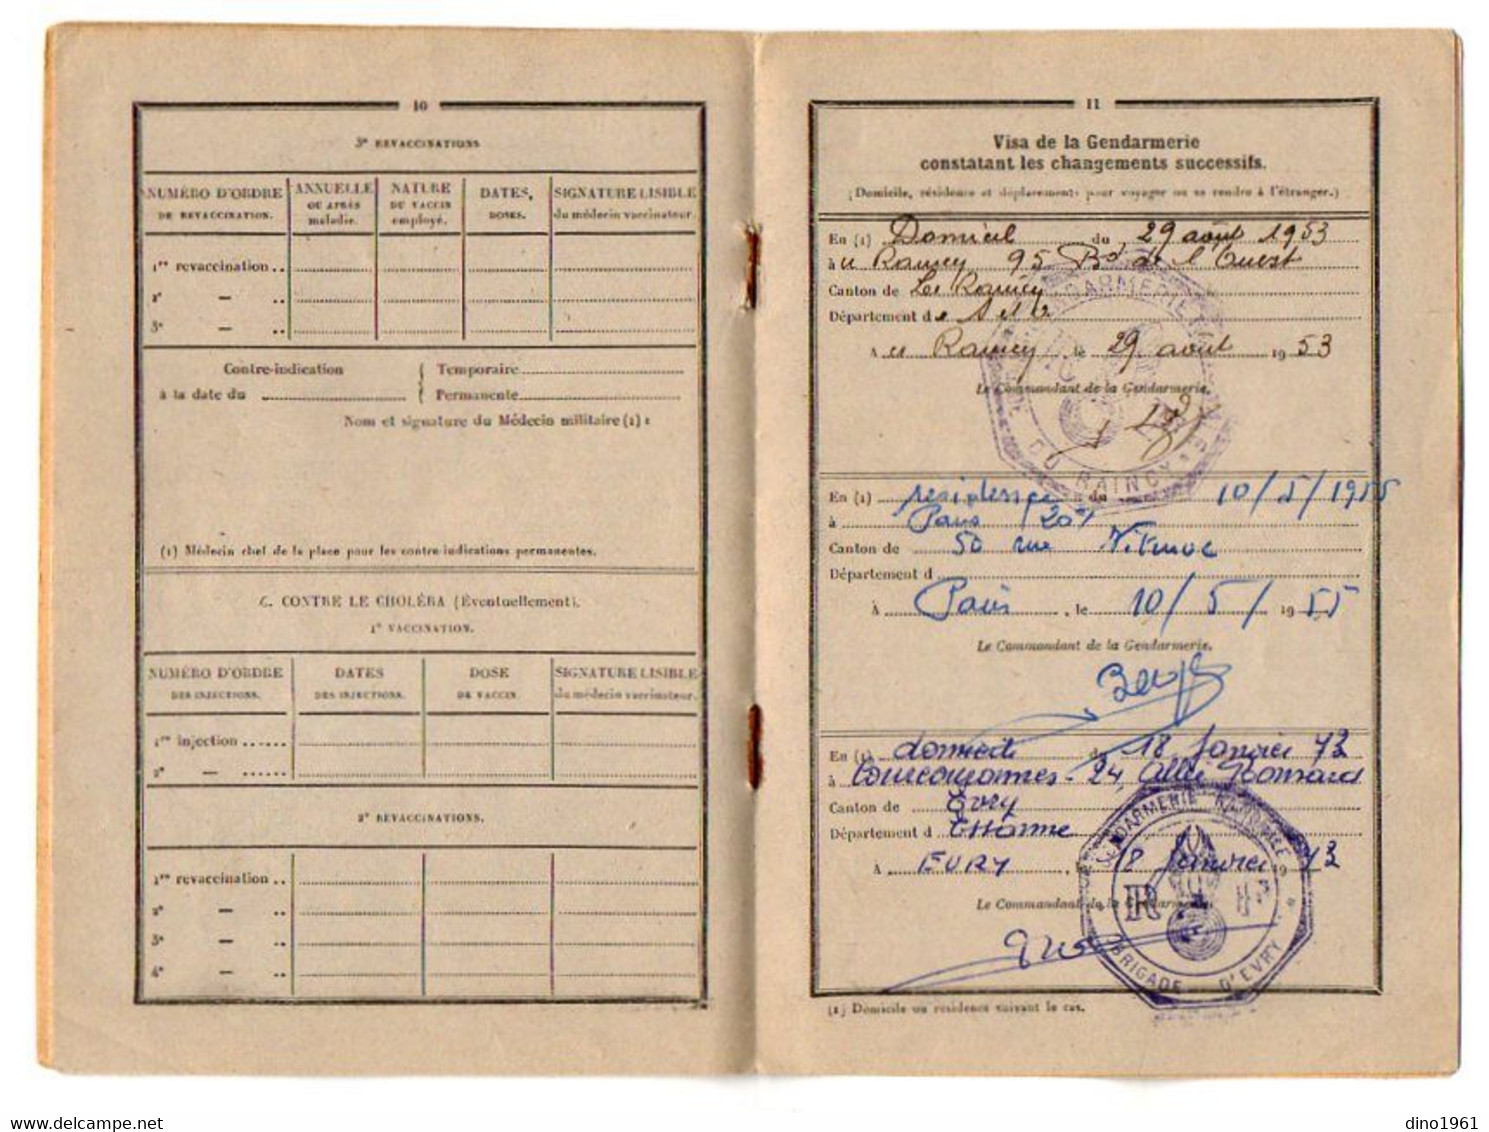 10
3e REVACCINATIONS
NUMÉRO D'ORDRE DE REVACCINATION.
ANNUELLE OU APRÈS maladie.
NATURE DU VACCIN employé.
DATES, DOSES.
SIGNATURE LISIBLE du médecin vaccinateur.
1re revaccination ..
2e — ..
3e — ..
Contre-indication
à la date du
Temporaire
Permanente
Nom et signature du Médecin militaire (1) :
(1) Médecin chef de la place pour les contre-indications permanentes.
C. CONTRE LE CHOLÉRA (Éventuellement).
1° VACCINATION.
NUMÉRO D'ORDRE DES INJECTIONS.
DATES DES INJECTIONS.
DOSE DE VACCIN.
SIGNATURE LISIBLE du médecin vaccinateur.
1re injection ......
2e — ......
2° REVACCINATIONS.
1re revaccination ..
2e — ..
3e — ..
4e — ..
11
Visa de la Gendarmerie
constatant les changements successifs.
(Domicile, résidence et déplacements pour voyager ou se rendre à l'étranger.)
En (1) Domicil du 29 août 1953
à Raincy 95 Bd de l'Ouest
Canton de Le Raincy
Département de S et O
A Raincy, le 29 août 1953
Le Commandant de la Gendarmerie,
GENDARMERIE
DU RAINCY
En (1) residence du 10/5/1955
à Paris 20e
Canton de 50 rue
Département d
A Paris, le 10/5/1955
Le Commandant de la Gendarmerie,
En (1) domicile du 18 Janvier 73
à Courcouronnes - 24, Allée Ronsard
Canton de Evry
Département d Essonne
A EVRY, le 18 Janvier 1973
Le Commandant de la Gendarmerie,
GENDARMERIE NATIONALE
R F
BRIGADE D'EVRY
(1) Domicile ou résidence suivant le cas.
www.delcampe.net
dino1961